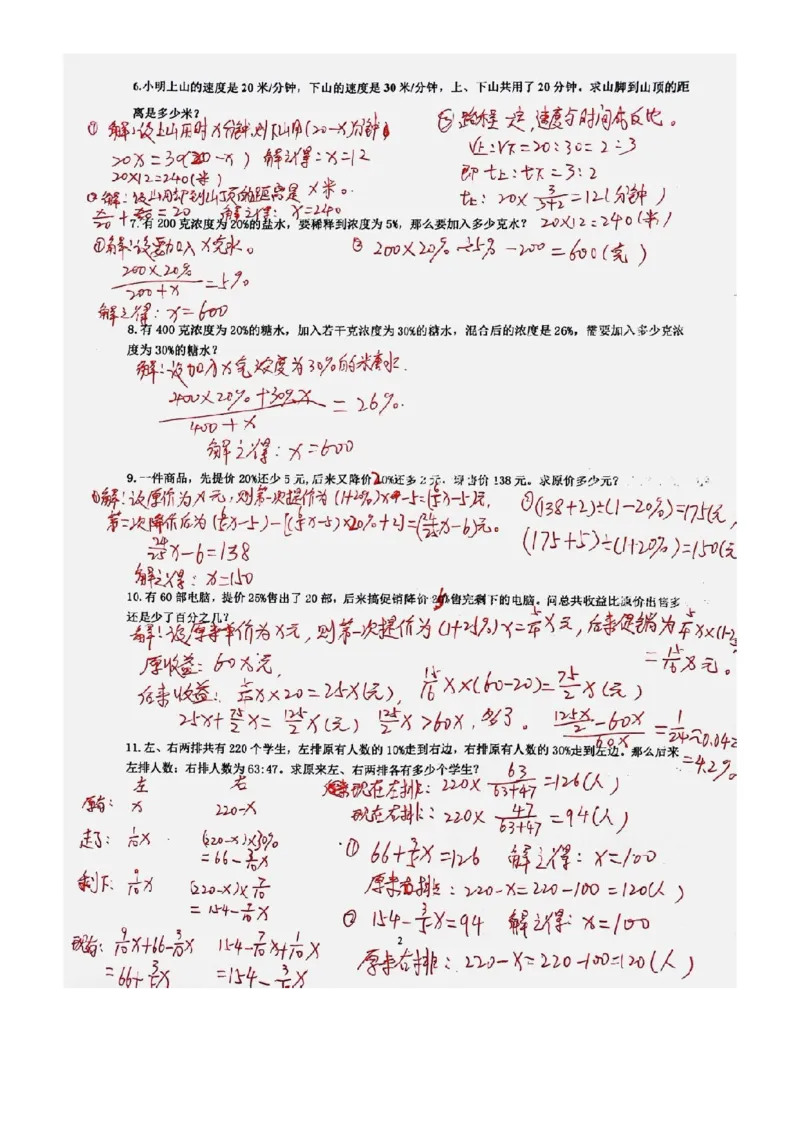 6.小明上山的速度是 20 米/分钟，下山的速度是 30 米/分钟，上、下山共用了 20 分钟。求山脚到山顶的距
离是多少米？
① 解：设上山用时 x 分钟,则下山用(20-x)分钟。
20x=30(20-x) 解之得：x=12
20×12=240(米)
② 解：设山脚到山顶的距离是 x 米。
x/20+x/30=20 解之得：x=240
③ 路程一定,速度与时间成反比。
V上:V下=20:30=2:3
即 t上:t下=3:2
t上：20×3/(3+2)=12(分钟)
20×12=240(米)
7.有 200 克浓度为 20%的盐水，要稀释到浓度为 5%，那么要加入多少克水？
①解：设要加入 x 克水。
(200×20%)/(200+x)=5%
解之得：x=600
② 200×20%÷5%-200=600(克)
8.有 400 克浓度为 20%的糖水，加入若干克浓度为 30%的糖水，混合后的浓度是 26%，需要加入多少克浓
度为 30%的糖水？
解：设加入 x 克浓度为30%的糖水.
(400×20%+30%x)/(400+x)=26%.
解之得：x=600
9.一件商品，先提价 20%还少 5 元,后来又降价20%还多 2 元，现售价 138 元。求原价多少元？
①解：设原价为 x 元,则第一次提价为 (1+20%)x-5=(6/5x-5)元,
第二次降价后为 (6/5x-5)-[(6/5x-5)×20%+2]=(24/25x-6)元。
24/25x-6=138
解之得：x=150
②(138+2)÷(1-20%)=175(元
(175+5)÷(1+20%)=150(元
10.有 60 部电脑，提价 25%售出了 20 部，后来搞促销降价 售完剩下的电脑。问总共收益比原价出售多
还是少了百分之几？
解：设原来单价为 x 元,则第一次提价为 (1+25%)x=5/4x元,后来促销为 5/4x×(1-2
=15/16x元。
原收益：60x元,
后来收益：5/4x×20=25x(元), 15/16x×(60-20)=75/2x(元)
25x+75/2x=125/2x(元) 125/2x>60x,多了。 (125x/2-60x)/60x=1/24≈0.042
=4.2%
11.左、右两排共有 220 个学生，左排原有人数的 10%走到右边，右排原有人数的 30%走到左边。那么后来
左排人数：右排人数为 63:47。求原来左、右两排各有多少个学生？
左 右
原有： x 220-x
走了： 1/10x (220-x)×30%
=66-3/10x
剩下： 9/10x (220-x)×7/10
=154-7/10x
现有： 9/10x+66-3/10x 154-7/10x+1/10x
=66+3/5x =154-3/5x
现在左排：220×63/(63+47)=126(人)
现在右排：220×47/(63+47)=94(人)
① 66+3/5x=126 解之得：x=100
原来右排：220-x=220-100=120(人)
② 154-3/5x=94 解之得：x=100
原来右排：220-x=220-100=120(人)
2